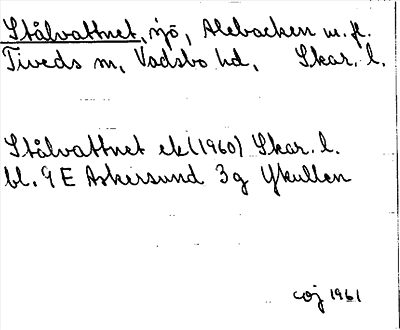 Stålvattnet, sjö, Alebacken m. fl.
Tiveds sn, Vadsbo hd, Skar. l.
Stålvattnet ek (1960) Skar. l.
bl. 9 E Askersund 3g Ykullen
coj 1961